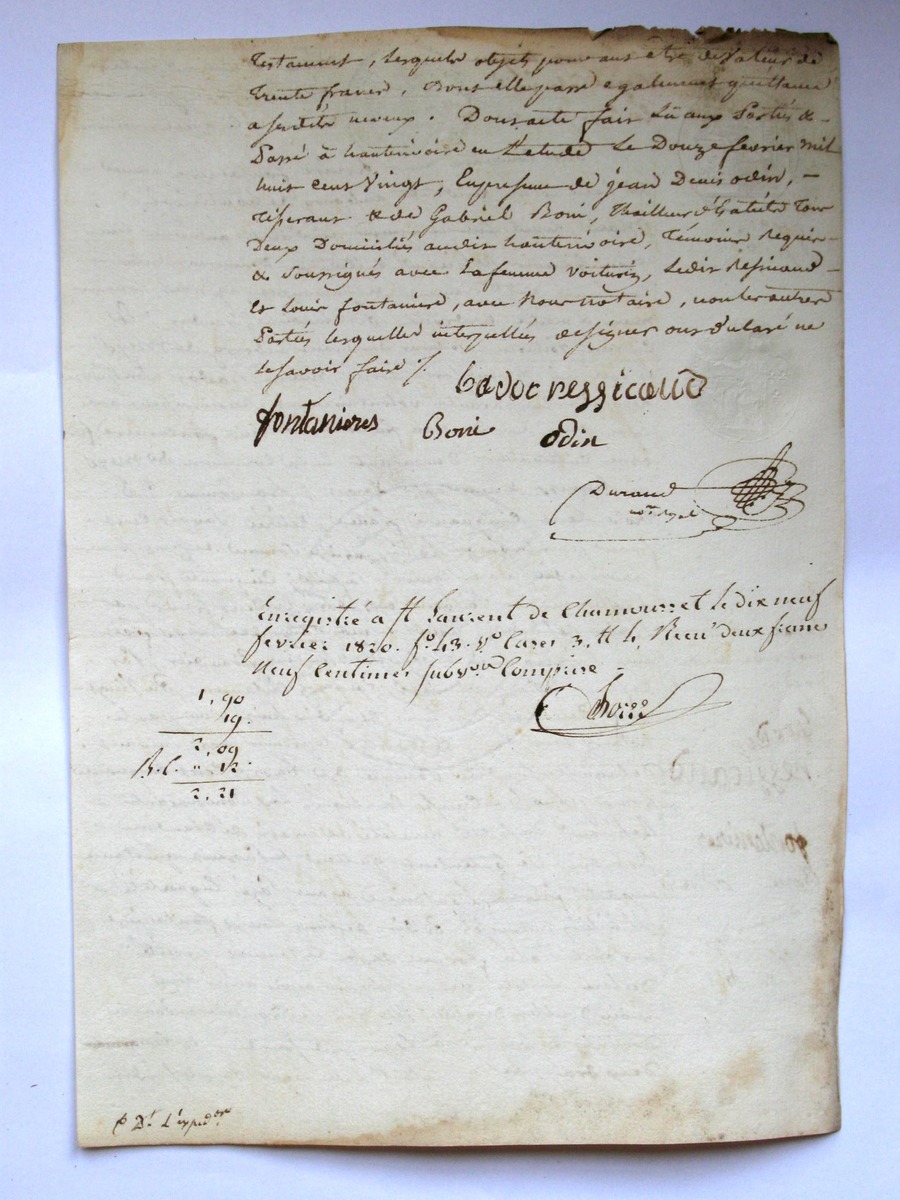 testament, lesquels objets pouvant être de valeur de
trente francs, Dont elle passe egalement quittance
a sesdits neveux. Dont acte fait Lû aux Parties &
Passé à hauterivoire en L'etude Le Douze fevrier mil
huit cent Vingt, En presence de jean Denis odin, -
tisserant & de Gabriel Boni, Tailleur d'habits tous
Deux Domiciliés audit hauterivoire, Témoins Requis
& soussignés avec La femme voiturier, Ledit Ressicaud
Et Louis fontaniere, avec Nous Notaire, non les autres
Parties lesquelles interpellées de signer ont Déclaré ne
le savoir faire /.
badoc ressicaud
fontanieres Boni odin
Durand
nore royal
Enregistré a St Laurent de Chamousset le dix neuf
fevrier 1820. fo 43. Vo Cases 3. et 4, Recu deux francs
Neuf Centimes subvon Comprise -
1, 90
19.
2, 09
R.C. " 12.
2, 21
Dt L'expedon